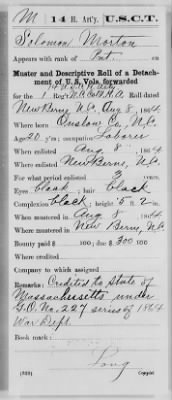 M 14 H. Art'y. U.S.C.T.
Solomon Morton
Appears with rank of Pvt. on
Muster and Descriptive Roll of a Detach-
ment of U. S. Vols. forwarded
for the 1 Reg't N.C. Col'd H.A. Roll dated
New Berne N.C. Aug 8, 1864.
Where born Onslow Co. N.C.
Age 20 y'rs; occupation Laborer
When enlisted Aug 8, 1864.
Where enlisted New Berne, N.C.
For what period enlisted 3 years.
Eyes black; hair black
Complexion black; height 5 ft. 2 in.
When mustered in Aug 8, 1864.
Where mustered in New Berne, N.C.
Bounty paid $ 100; due $ 300 100
Where credited
Company to which assigned
Remarks: Credited to State of
Massachusetts under
G.O. No. 227 series of 1864
War Dept.
Book mark:
Long
(339) Copyist.